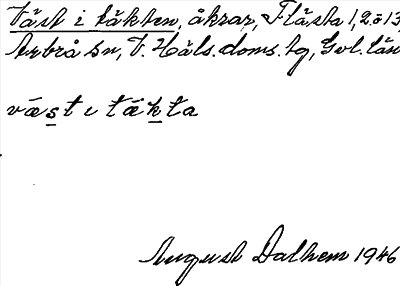 Väst i täkten, åkrar, Flästa 1,2 o 13,
Arbrå sn, V. Häls. doms. tg, Gvl. län
väst i täkta
August Dalhem 1946